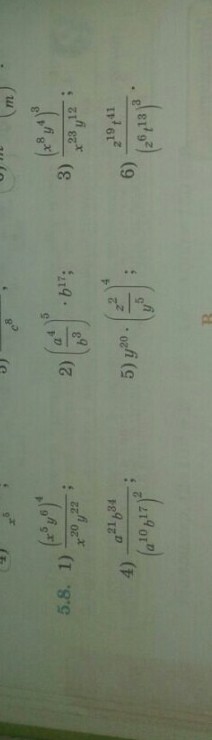 4) x^5 ;
c^8 ,
(m) .
5.8. 1) (x^5 y^6)^4 / (x^20 y^22) ; 2) (a^4 / b^3)^5 · b^17 ; 3) (x^8 y^4)^3 / (x^23 y^12) ;
4) a^21 b^34 / (a^10 b^17)^2 ; 5) y^20 · (z^2 / y^5)^4 ; 6) z^19 t^41 / (z^6 t^13)^3 .
В